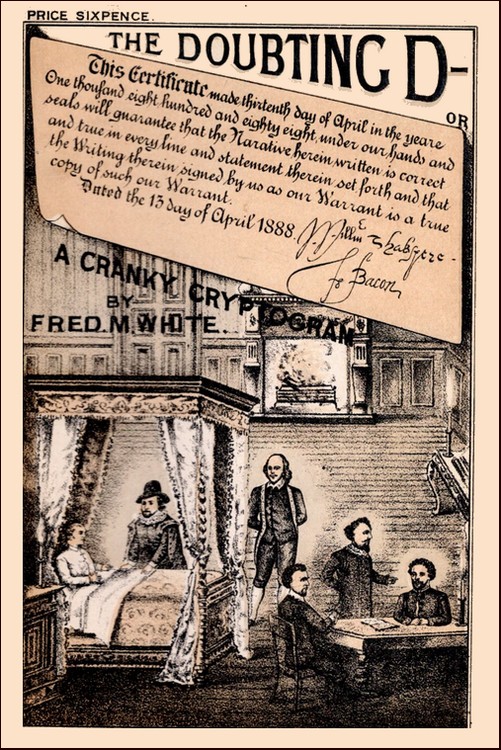 PRICE SIXPENCE.
THE DOUBTING D-
OR
This Certificate made thirtenth day of April in the yeare
One thousand eight hundred and eighty eight, under our hands and
seals will guarantee that the Narative herein written is correct
and true in every line and statement therein set forth and that
the Writing therein signed by us as our Warrant is a true
copy of such our Warrant.
Dated the 13 day of April 1888.
Willm Shakspere.
Fr Bacon,
A CRANKY CRYPTOGRAM
BY
FRED. M. WHITE.